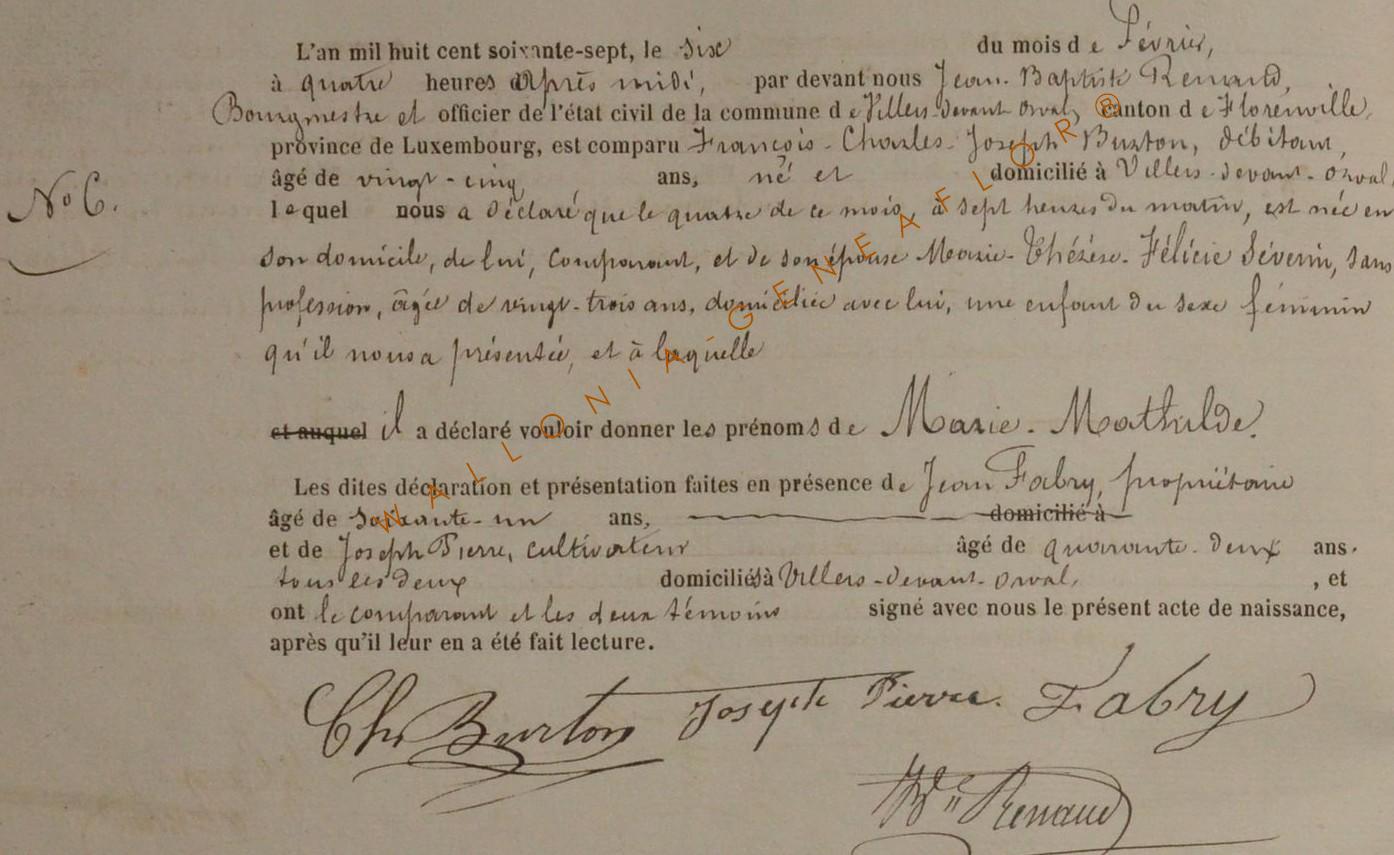 L'an mil huit cent soixante-sept, le six du mois de Février,
à quatre heures après midi, par devant nous Jean-Baptiste Renaud,
Bourgmestre et officier de l'état civil de la commune de Villers-devant-Orval, canton de Florenville,
province de Luxembourg, est comparu François-Charles-Joseph Burton, débitant,
âgé de vingt-cinq ans, né et domicilié à Villers-devant-Orval,
N° 6.
lequel nous a déclaré que le quatre de ce mois, à sept heures du matin, est née en
son domicile, de lui, comparant, et de son épouse Marie-Thérèse-Félicie Séverin, sans
profession, âgée de vingt-trois ans, domiciliée avec lui, une enfant du sexe féminin
qu'il nous a présentée, et à laquelle
et auquel il a déclaré vouloir donner les prénoms de Marie-Mathilde.
Les dites déclaration et présentation faites en présence de Jean Fabry, propriétaire
âgé de soixante-un ans, domicilié à
et de Joseph Pierre, cultivateur âgé de quarante-deux ans.
tous les deux domiciliés à Villers-devant-Orval, , et
ont le comparant et les deux témoins signé avec nous le présent acte de naissance,
après qu'il leur en a été fait lecture.
Ch Burton Joseph Pierre. Fabry
Renaud
WALLONIA GENEAFLOR®